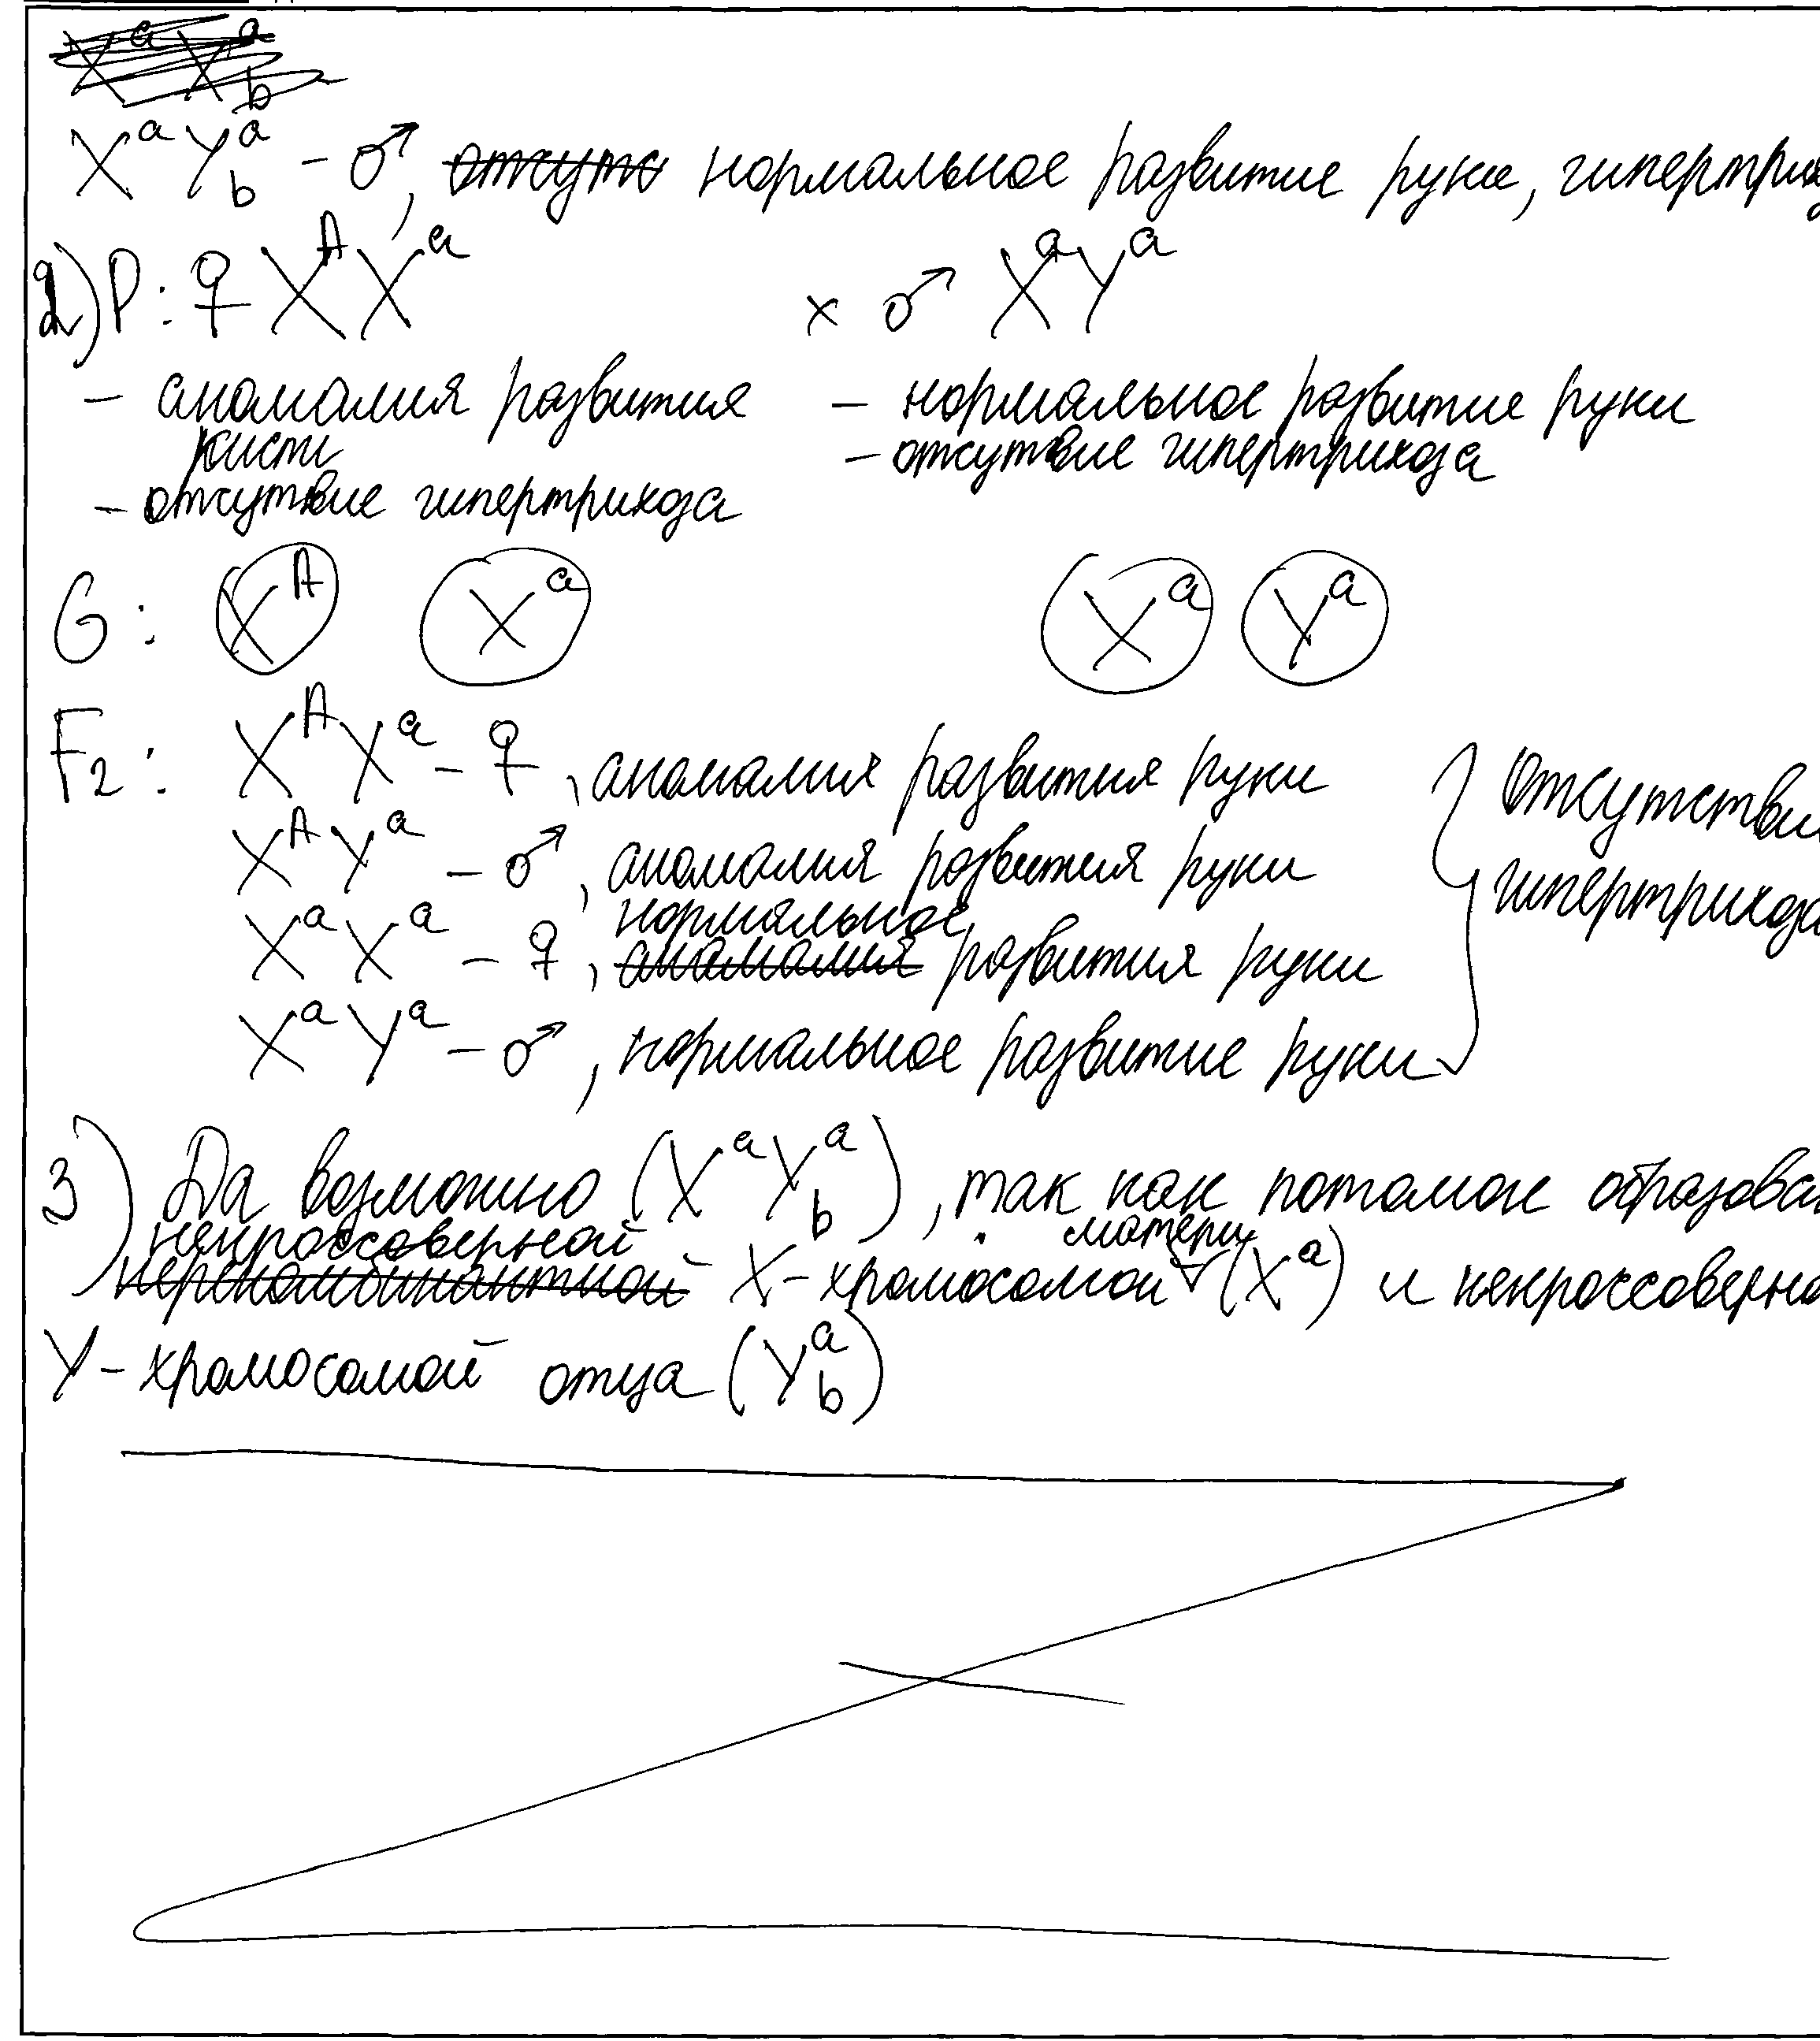 XᵃYᵃb - ♂, нормальное развитие руки, гипертрих
2) P: ♀ XᴬXᵃ × ♂ XᵃYᵃ
- аномалия развития - нормальное развитие руки
кисти - отсутвие гипертрихоза
- отсутвие гипертрихоза
G: Xᴬ Xᵃ Xᵃ Yᵃ
F₂: XᴬXᵃ - ♀, аномалия развития руки
XᴬYᵃ - ♂, аномалия развития руки
XᵃXᵃ - ♀, нормальное развития руки
XᵃYᵃ - ♂, нормальное развитие руки
Отсутстви
гипертрихоза
3) Да возможно (XᵃYᵃb), так как потомок образова
некроссоверной X-хромосомой матери (Xᵃ) и некроссоверно
Y-хромосомой отца (Yᵃb)